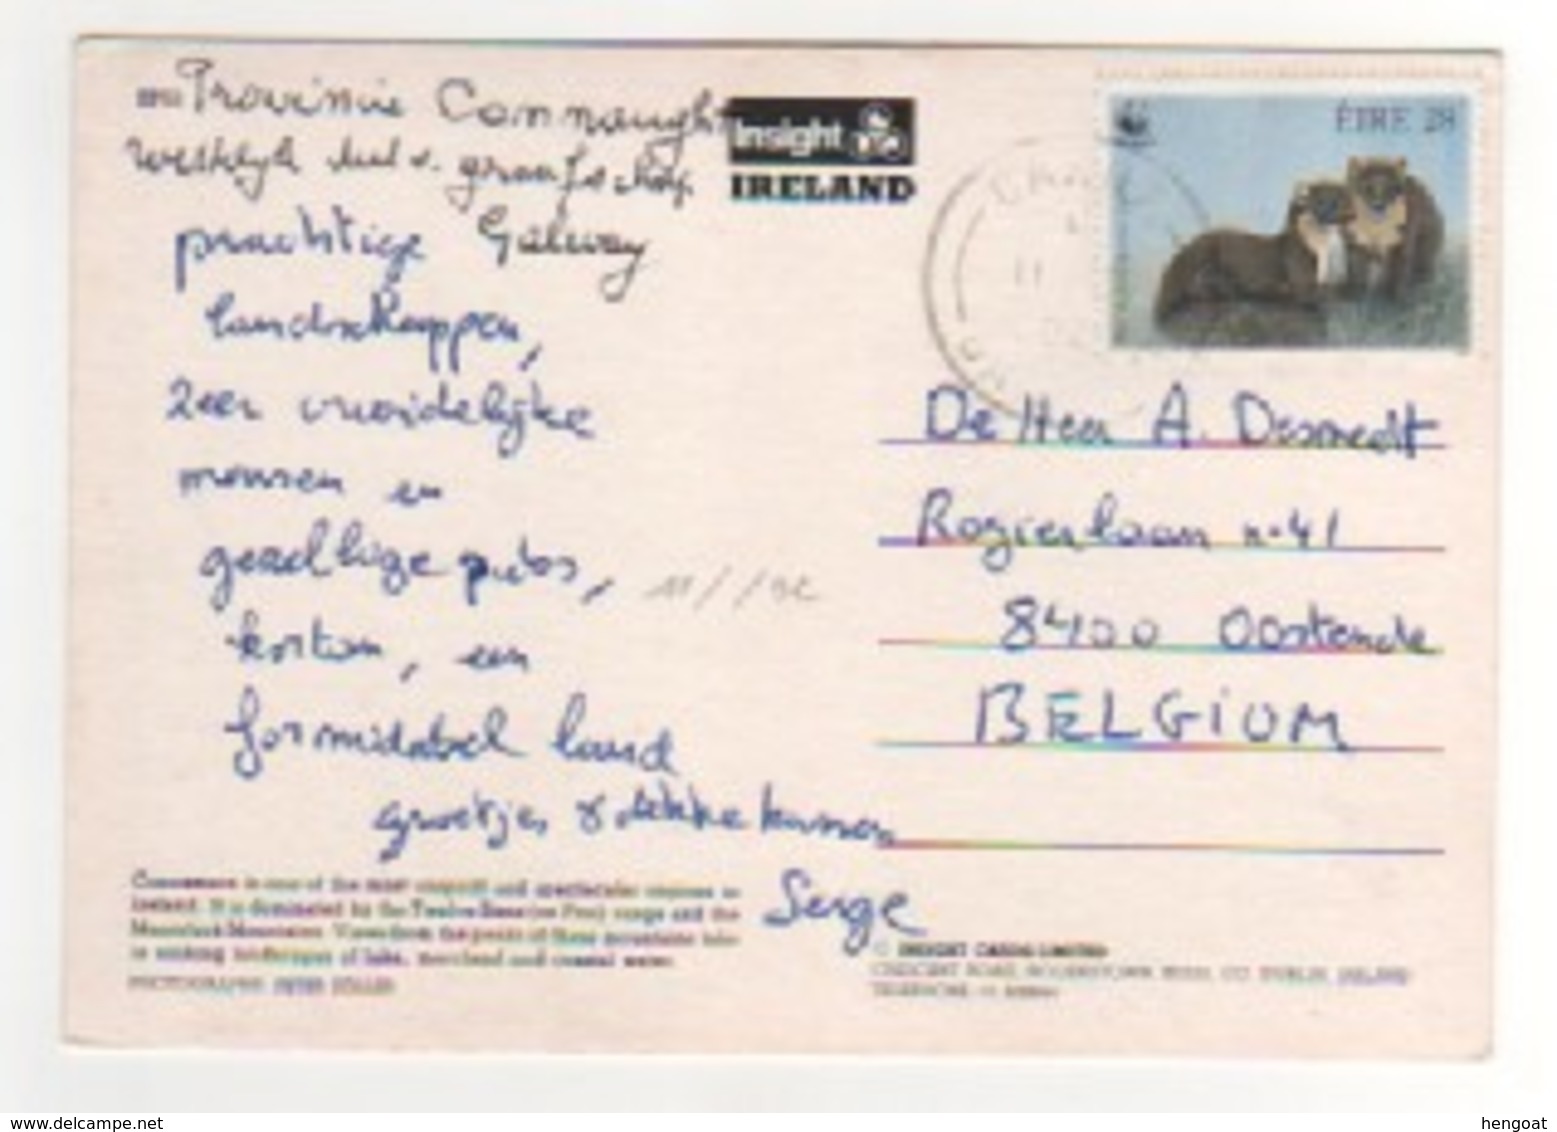 Provincie Connaught
westelijk deel v. graafschap
Galway
prachtige
landschappen,
zeer vriendelijke
mensen en
gezellige pubs,
kortom, een
formidabel land
groetjes & dikke kussen
Serge
Insight
IRELAND
ÉIRE 28
De Heer A. Desmedt
Rogierlaan n° 41
8400 Oostende
BELGIUM
Connemara is one of the most unspoilt and spectacular regions in
Ireland. It is dominated by the Twelve Bens (or Pins) range and the
Maumturk Mountains. Views from the peaks of these mountains take
in striking landscapes of lake, moorland and coastal water.
PHOTOGRAPH: PETER ZÖLLER
© INSIGHT CARDS LIMITED
CO. DUBLIN, IRELAND
TELEPHONE
www.delcampe.net
hengoat